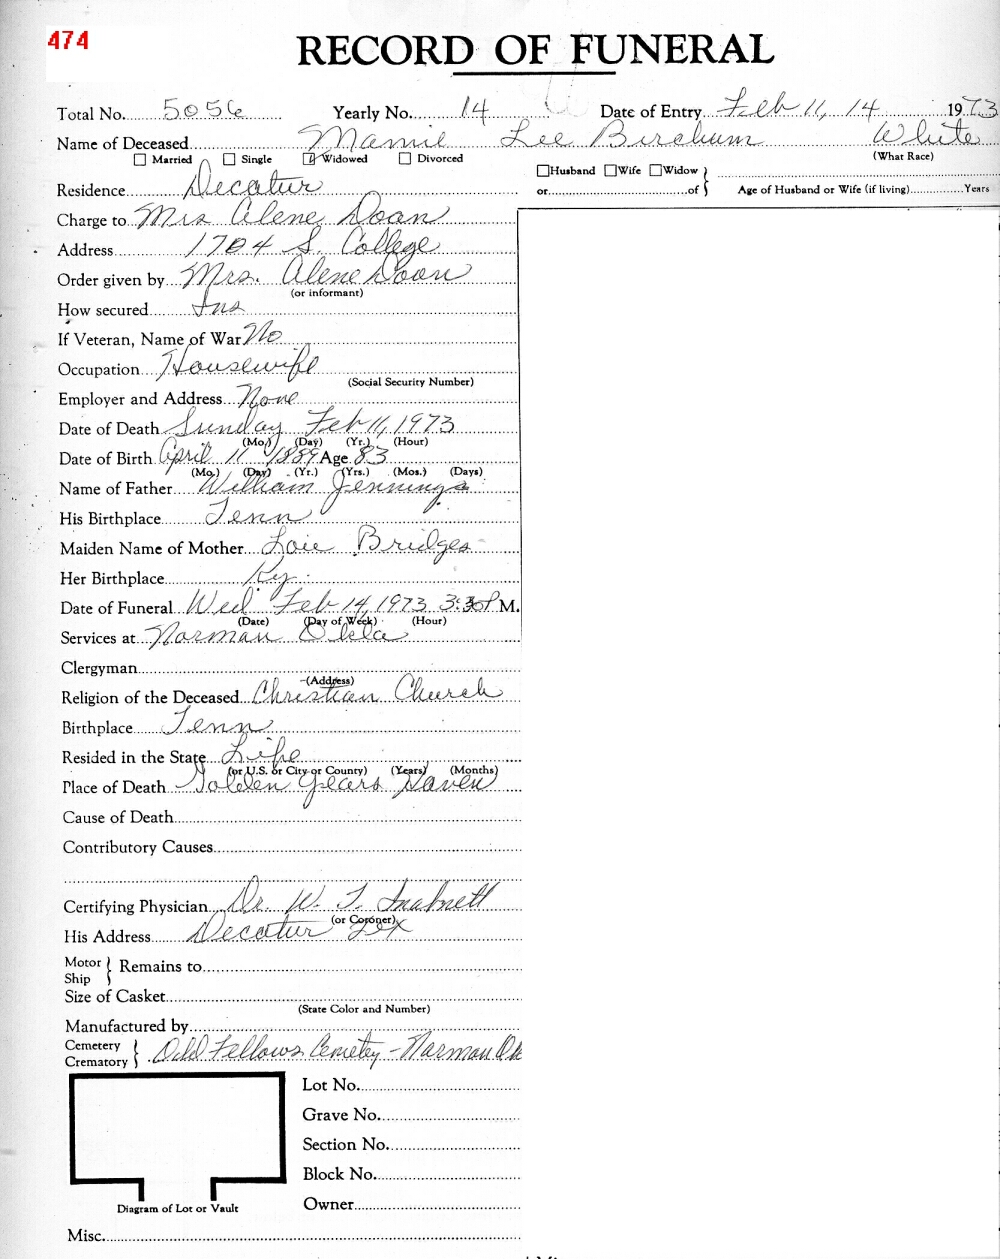 474
RECORD OF FUNERAL
Total No. 5056 Yearly No. 14 Date of Entry Feb 11, 14 1973
Name of Deceased Mamie Lee Bircham White
Married Single Widowed Divorced (What Race)
Husband Wife Widow
Residence Decatur or of Age of Husband or Wife (if living) Years
Charge to Mrs Alene Doan
Address 1704 S. College
Order given by Mrs. Alene Doan
(or informant)
How secured Ins
If Veteran, Name of War No
Occupation Housewife
(Social Security Number)
Employer and Address None
Date of Death Sunday Feb 11, 1973
(Mo.) (Day) (Yr.) (Hour)
Date of Birth April 11 1889 Age 83
(Mo.) (Day) (Yr.) (Yrs.) (Mos.) (Days)
Name of Father William Jennings
His Birthplace Tenn
Maiden Name of Mother Loie Bridges
Her Birthplace Ky.
Date of Funeral Wed Feb 14, 1973 3:30 P M.
(Date) (Day of Week) (Hour)
Services at Norman Okla
Clergyman
(Address)
Religion of the Deceased Christian Church
Birthplace Tenn
Resided in the State Life
(or U.S. or City or County) (Years) (Months)
Place of Death Golden Years Haven
Cause of Death
Contributory Causes
Certifying Physician Dr. W. T. Inabnett
(or Coroner)
His Address Decatur Tex
Motor Ship Remains to
Size of Casket
(State Color and Number)
Manufactured by
Cemetery Crematory Odd Fellows Cemetey - Norman Ok
Lot No.
Grave No.
Section No.
Block No.
Owner
Diagram of Lot or Vault
Misc.